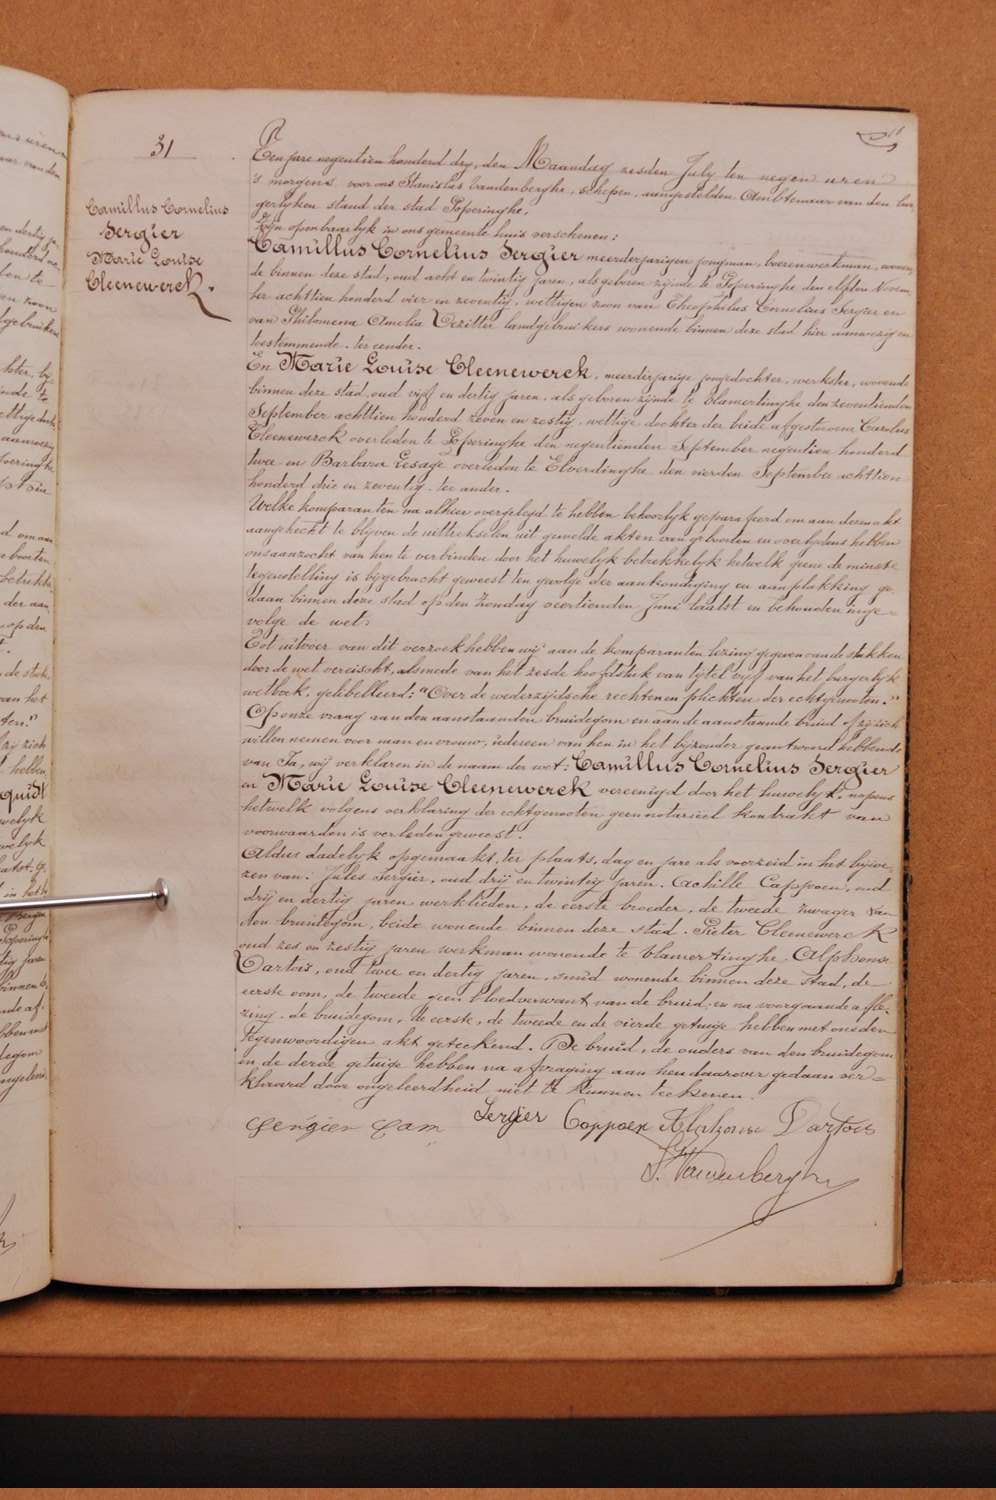 31
Camillus Cornelius
Sergier
Marie Louise
Cleenewerck.
Ten jare negentien honderd dry, den Maandag zesden July ten negen uren
's morgens voor ons Stanislas Vandenberghe, schepen, aangestelden Ambtenaar van den bur
gerlyken stand der stad Poperinghe,
Zyn openbaarlyk in ons gemeente huis verschenen:
Camillus Cornelius Sergier meerderjarigen jongman, boerenwerkman, wonen
de binnen deze stad, oud acht en twintig jaren, als geboren zynde te Poperinghe den elfsten Novem
ber achttien honderd vier en zeventig, wettigen zoon van Theophilus Cornelius Sergier en
van Philomena Amelia Dezitter landgebruikers wonende binnen deze stad hier aanwezig en
toestemmende. ter eender.
En Marie Louise Cleenewerck, meerderjarige jongedochter, werkster, wonende
binnen deze stad, oud vijf en dertig jaren, als geboren zijnde te Vlamertinghe den zeventienden
September achttien honderd zeven en zestig, wettige dochter der beide afgestorvene Carolus
Cleenewerck overleden te Poperinghe den negentienden September negentien honderd
twee en Barbara Lesage overleden te Elverdinghe den vierden September achttien
honderd drie en zeventig. ter ander.
Welke komparanten na alhier overgelegd te hebben behoorlyk geparafeerd om aan deren akt
aangehecht te blyven de uittrekselen uit gemelde akten van geboorten en overlydens hebben
ons aanzocht van hen te verbinden door het huwelyk betrekkelyk hetwelk geene de minste
tegenstelling is bygebracht geweest ten gevolge der aankondiging en aanplakking ge
daan binnen deze stad op den Zondag veertienden Juni laatst en behouden inge=
volge de wet.
Tot uitvoer van dit verzoek hebben wij aan de komparanten lezing gegeven van de stukken
door de wet vereischt, alsmede van het zesde hoofdstuk van tytel vyf van het burgerlyk
wetboek, gelibelleerd: "Over de wederzijdsche rechten en plichten der echtgenooten."
Op onze vraag aan den aanstaanden bruidegom en aan de aanstaande bruid of zij zich
willen nemen voor man en vrouw, iedereen van hen in het byzonder geantwoord hebbende
van Ja, wij verklaren in de naam der wet: Camillus Cornelius Sergier
en Marie Louise Cleenewerck vereenigd door het huwelyk. nopens
hetwelk volgens verklaring der echtgenooten geen notariëel kontrakt van
voorwaarden is verleden geweest.
Aldus dadelyk opgemaakt, ter plaats, dag en jare als voorzeid in het bywe-
zen van. Jules Sergier, oud drij en twintig jaren. Achille Cappoen, oud
drij en dertig jaren werklieden, de eerste broeder, de tweede zwager van
den bruidegom, beide wonende binnen deze stad. Pieter Cleenewerck
oud zes en zestig jaren werkman wonende te Vlamertinghe, Alphonse
Dartois, oud twee en dertig jaren, smid wonende binnen deze stad, de
eerste oom, de tweede geen bloedverwant van de bruid, en na voorgaande afle-
zing. de bruidegom, de eerste, de tweede en de vierde getuige hebben met ons den
tegenwoordigen akt geteekend. De bruid, de ouders van den bruidegom
en de derde getuige hebben na afvraging aan hen daarover gedaan ver=
klaard door ongeleerdheid niet te kunnen teekenen.
Sergier Cam Sergier Coppoen Alphonse Dartois
S. Vandenberghe